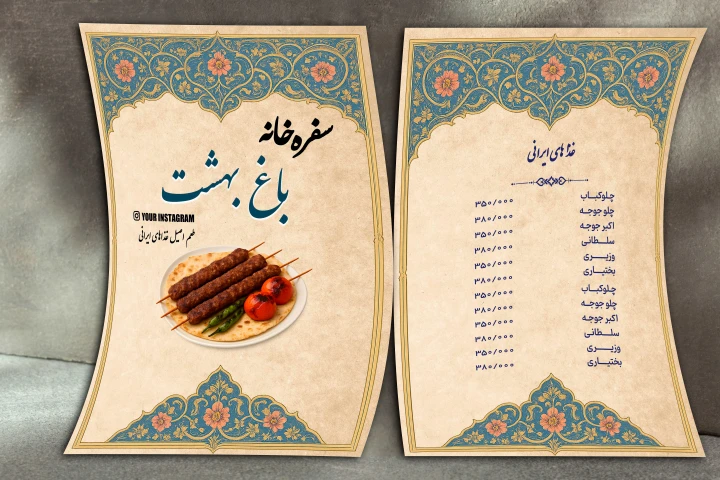 سفره خانه
باغ بهشت
YOUR INSTAGRAM
طعم اصیل غذاهای ایرانی
غذاهای ایرانی
چلوکباب ۳۵۰/۰۰۰
چلوجوجه ۳۸۰/۰۰۰
اکبر جوجه ۳۵۰/۰۰۰
سلطانی ۳۸۰/۰۰۰
وزیری ۳۵۰/۰۰۰
بختیاری ۳۸۰/۰۰۰
چلوکباب ۳۵۰/۰۰۰
چلوجوجه ۳۸۰/۰۰۰
اکبر جوجه ۳۵۰/۰۰۰
سلطانی ۳۸۰/۰۰۰
وزیری ۳۵۰/۰۰۰
بختیاری ۳۸۰/۰۰۰